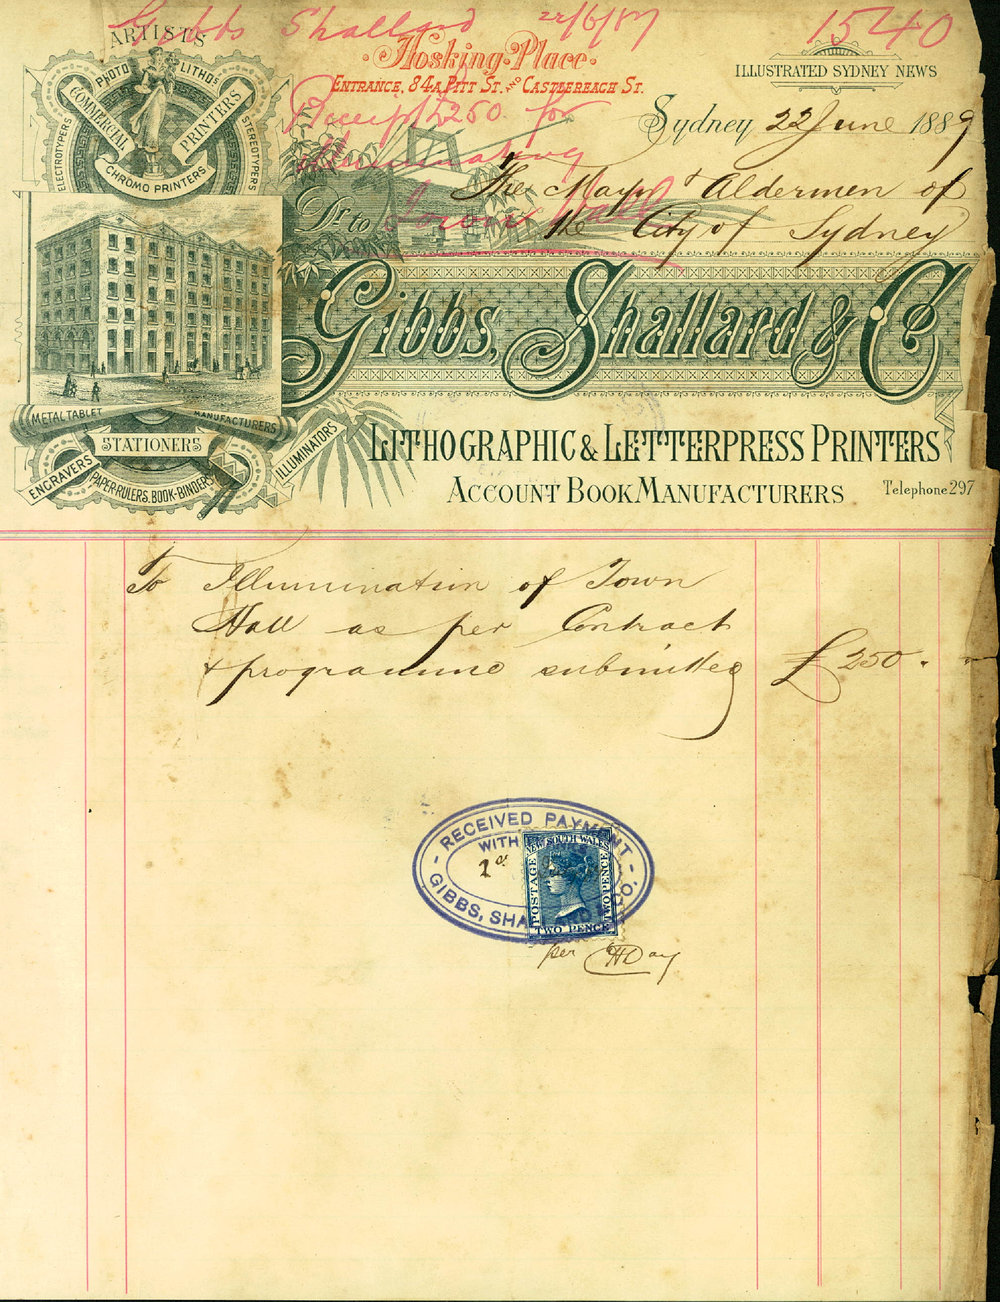 Gibbs Shallard 22/6/87 1540
Receipt £250 for
illuminating
Town Hall
ARTISTS
PHOTO LITHOS
COMMERCIAL PRINTERS
ELECTROTYPERS
STEREOTYPERS
CHROMO PRINTERS
METAL TABLET MANUFACTURERS
STATIONERS
ENGRAVERS
PAPER-RULERS, BOOK-BINDERS
ILLUMINATORS
Hosking Place
ENTRANCE, 84A PITT ST. AND CASTLEREAGH ST.
ILLUSTRATED SYDNEY NEWS
Sydney 22 June 1889
The Mayor & Aldermen of
Dr to the City of Sydney
Gibbs, Shallard & Co
LITHOGRAPHIC & LETTERPRESS PRINTERS
ACCOUNT BOOK MANUFACTURERS
Telephone 297
To Illumination of Town
Hall as per Contract
& programme submitted £250.
RECEIVED PAYMENT
WITH
GIBBS, SHALLARD & CO.
NEW SOUTH WALES
POSTAGE
TWO PENCE
TWO PENCE
per Day